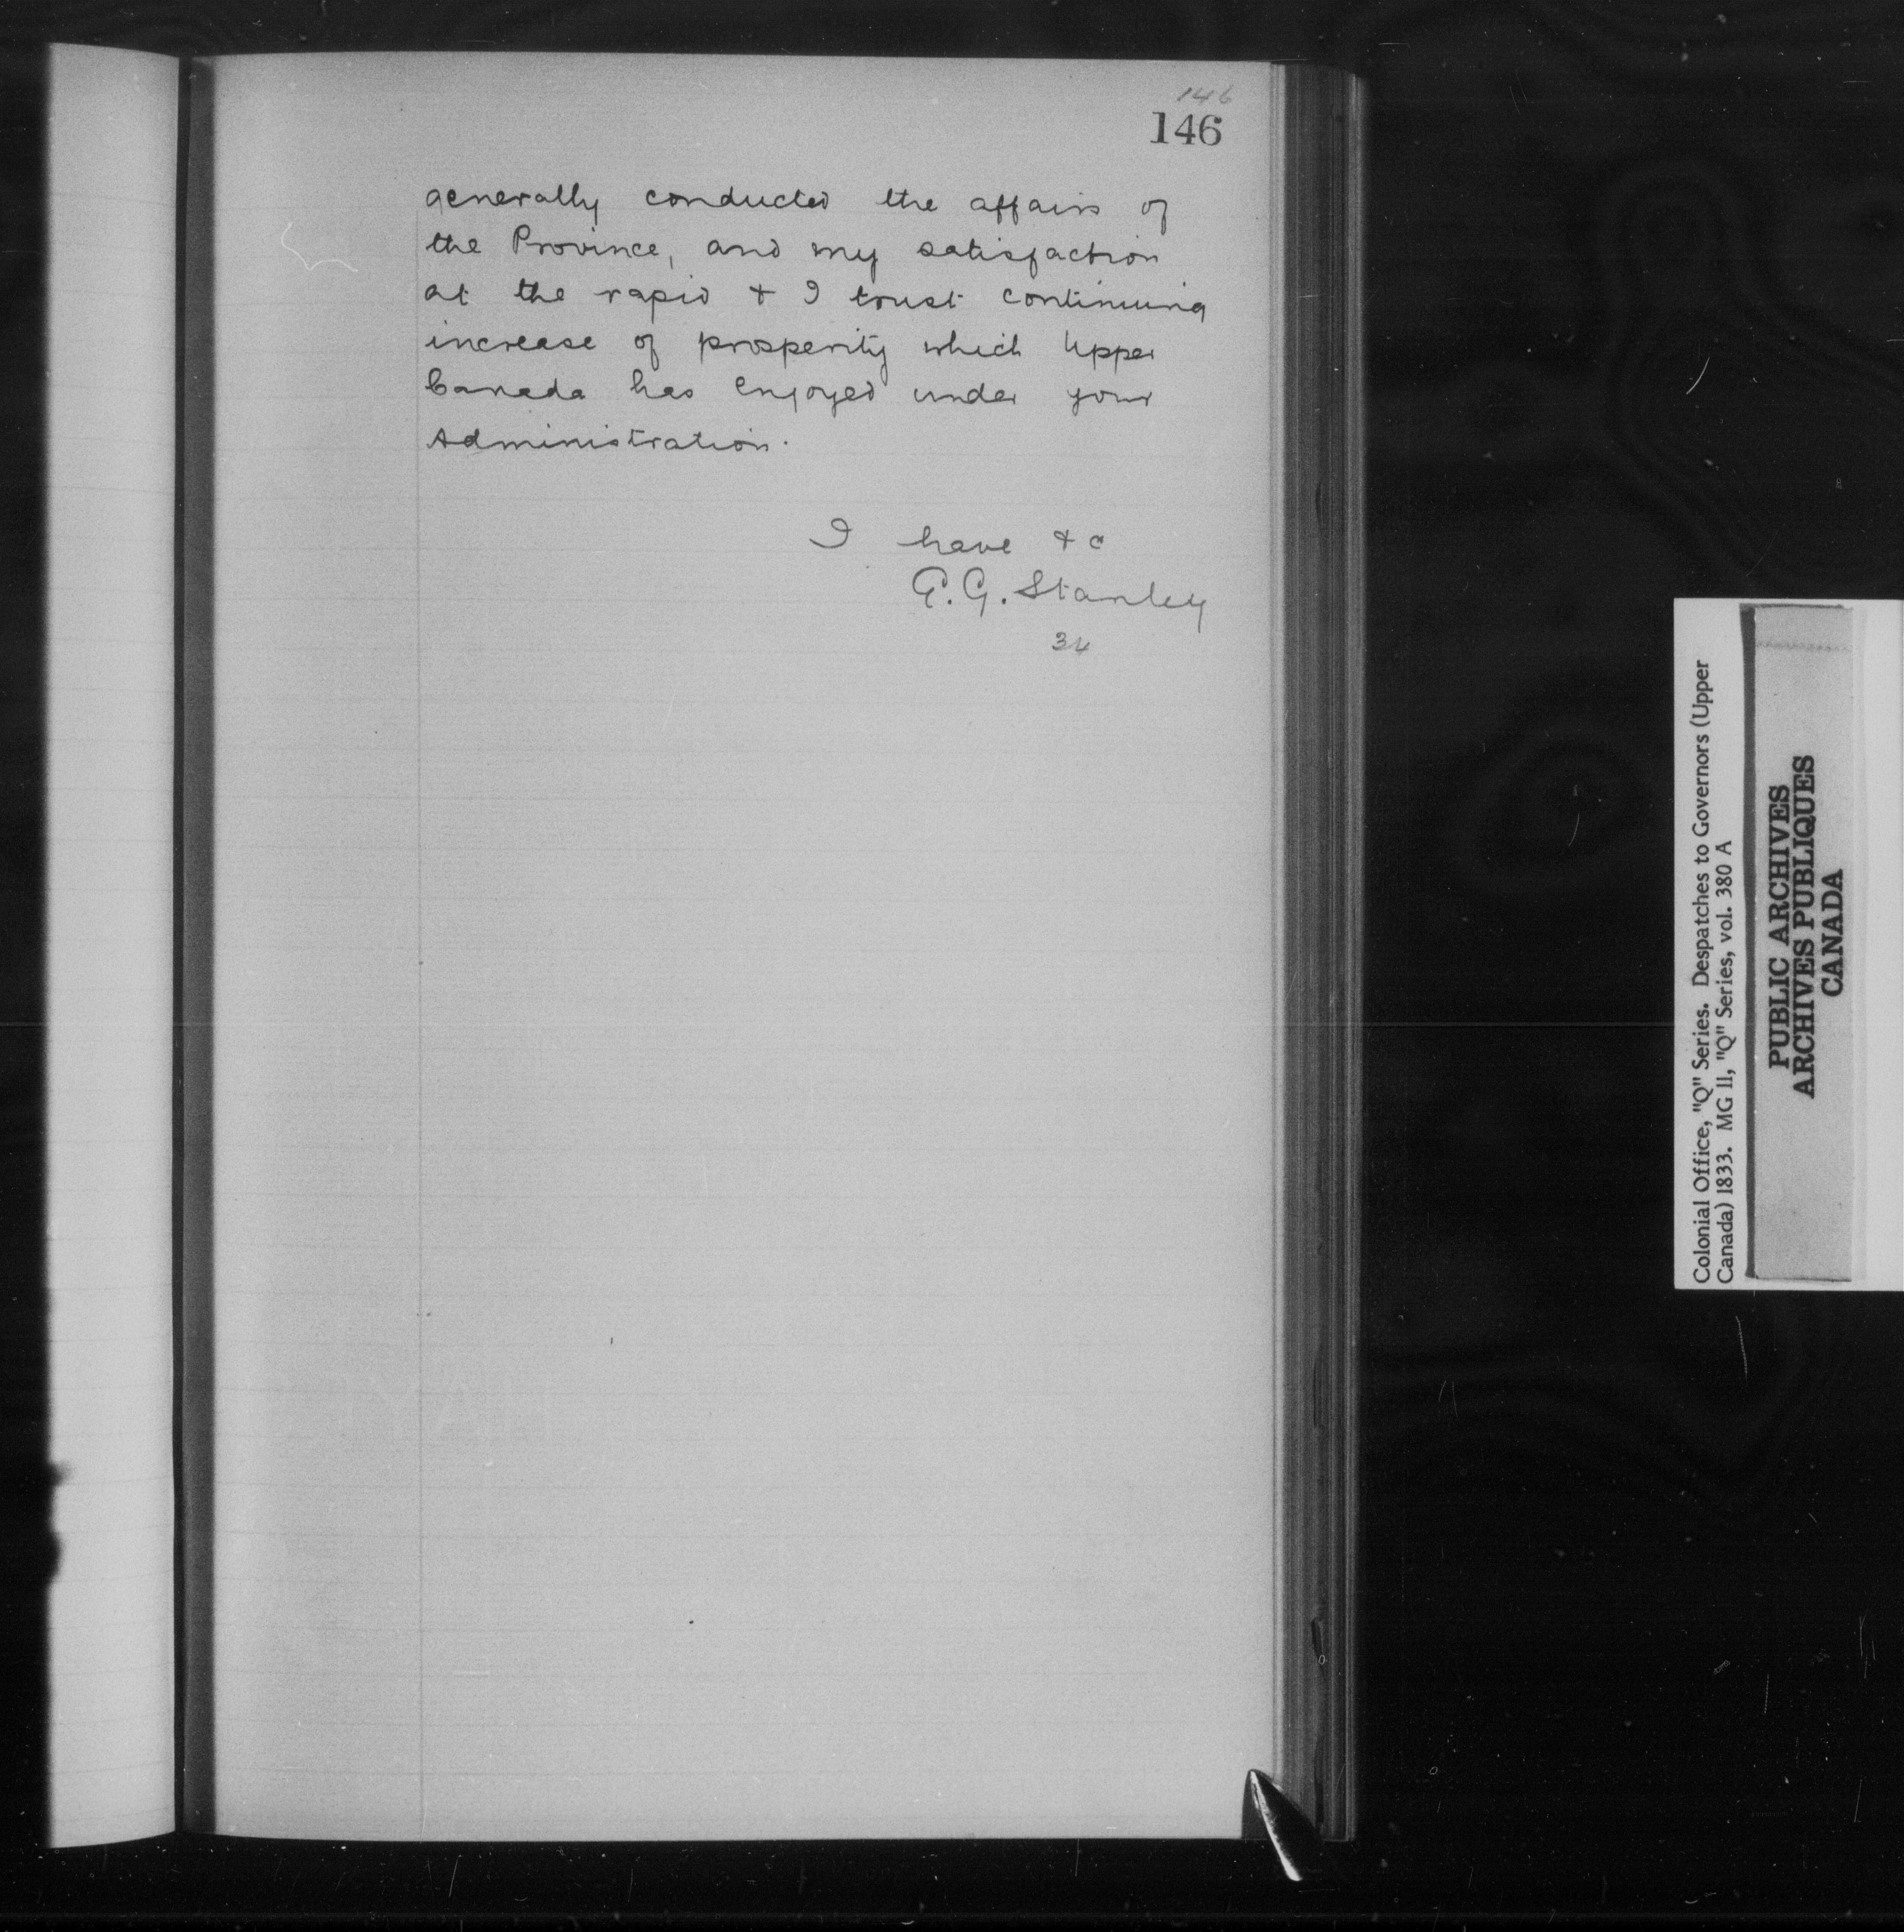 146
146
generally conducted the affairs of
the Province, and my satisfaction
at the rapid & I trust continuing
increase of prosperity which Upper
Canada has enjoyed under your
Administration.
I have &c
E.G. Stanley
34
Colonial Office, "Q" Series. Despatches to Governors (Upper
Canada) 1833. MG 11, "Q" Series, vol. 380 A
PUBLIC ARCHIVES
ARCHIVES PUBLIQUES
CANADA